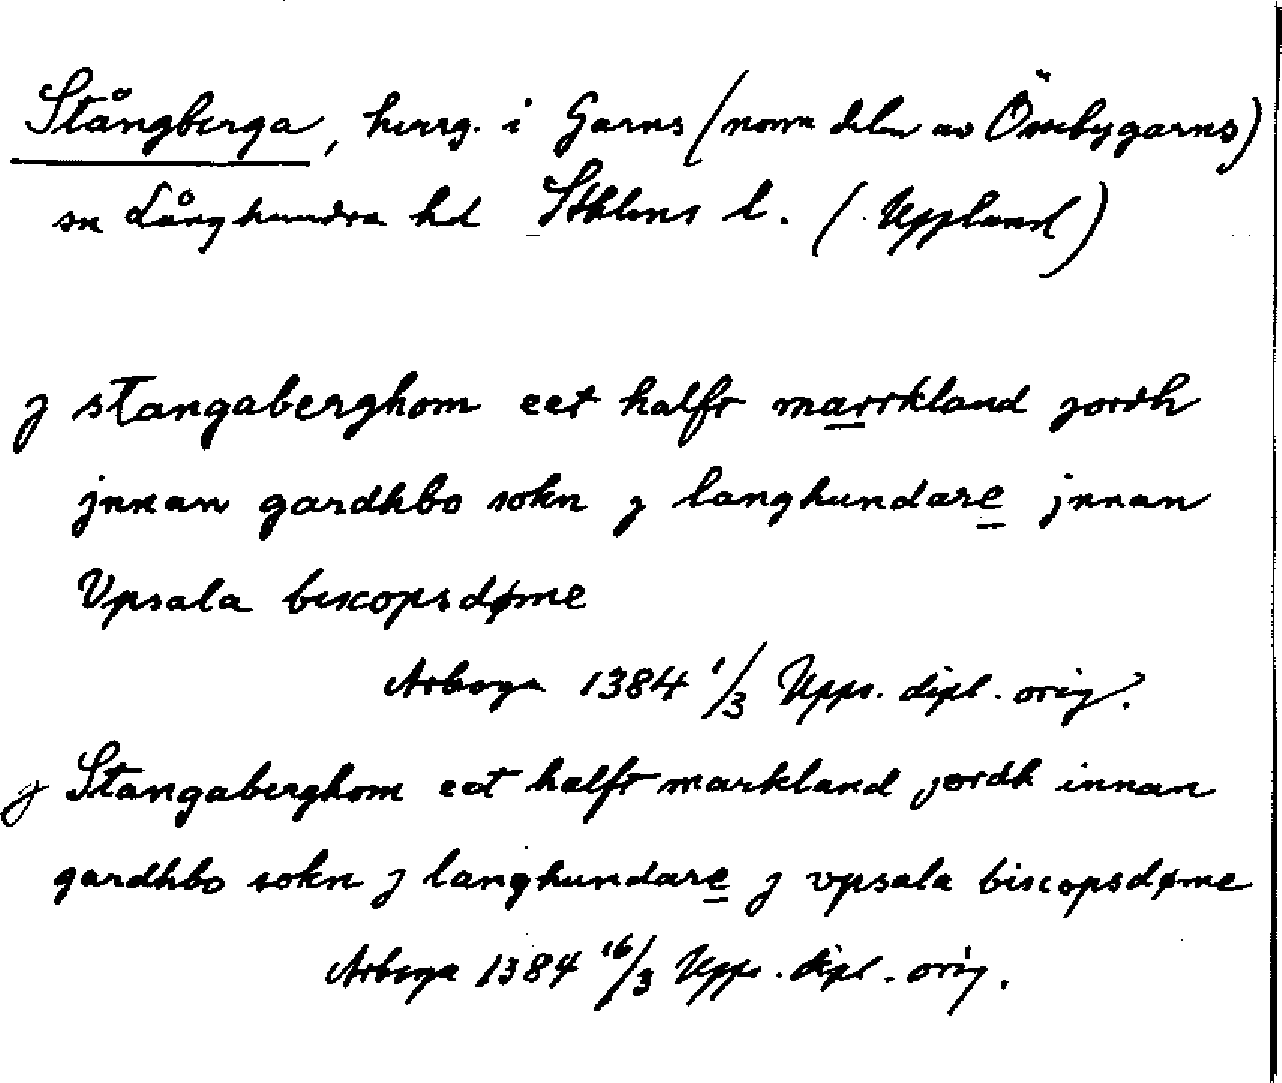 Stångberga, herrg. i Garns (norra delen av Össebygarns)
sn Långhundra hd Sthlms l. (Uppland)
j stangaberghom eet halft markland jordh
jnnan gardhbo sokn j langhundare jnnan
Vpsala biscopsdøme
Arboga 1384 1/3 Upps. dipl. orig.
j Stangaberghom eet halft markland jordh innan
gardhbo sokn j langhundare j vpsala biscopsdøme
Arboga 1384 16/3 Upps. dipl. orig.